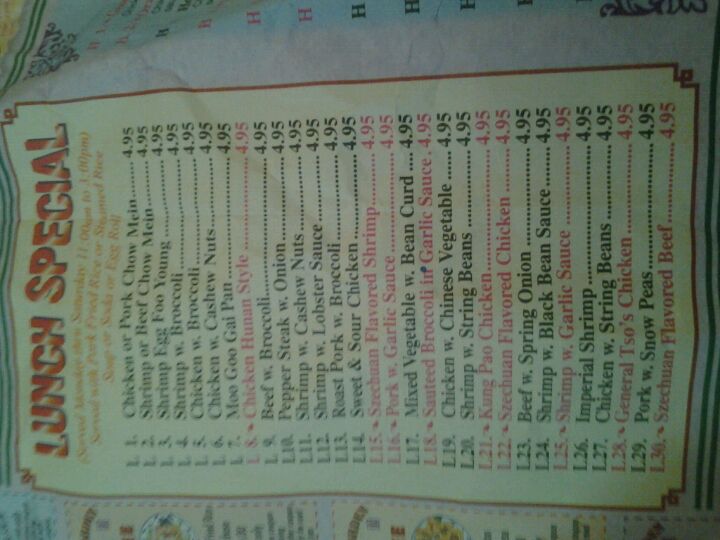 LUNCH SPECIAL
(Served Monday thru Saturday 11:00am to 3:00pm)
Served with Pork Fried Rice or Steamed Rice
Soup or Soda or Egg Roll
L 1. Chicken or Pork Chow Mein 4.95
L 2. Shrimp or Beef Chow Mein 4.95
L 3. Shrimp Egg Foo Young 4.95
L 4. Shrimp w. Broccoli 4.95
L 5. Chicken w. Broccoli 4.95
L 6. Chicken w. Cashew Nuts 4.95
L 7. Moo Goo Gai Pan 4.95
L 8. Chicken Hunan Style 4.95
L 9. Beef w. Broccoli 4.95
L10. Pepper Steak w. Onion 4.95
L11. Shrimp w. Cashew Nuts 4.95
L12. Shrimp w. Lobster Sauce 4.95
L13. Roast Pork w. Broccoli 4.95
L14. Sweet & Sour Chicken 4.95
L15. Szechuan Flavored Shrimp 4.95
L16. Pork w. Garlic Sauce 4.95
L17. Mixed Vegetable w. Bean Curd 4.95
L18. Sauteed Broccoli in Garlic Sauce 4.95
L19. Chicken w. Chinese Vegetable 4.95
L20. Shrimp w. String Beans 4.95
L21. Kung Pao Chicken 4.95
L22. Szechuan Flavored Chicken 4.95
L23. Beef w. Spring Onion 4.95
L24. Shrimp w. Black Bean Sauce 4.95
L25. Shrimp w. Garlic Sauce 4.95
L26. Imperial Shrimp 4.95
L27. Chicken w. String Beans 4.95
L28. General Tso's Chicken 4.95
L29. Pork w. Snow Peas 4.95
L30. Szechuan Flavored Beef 4.95